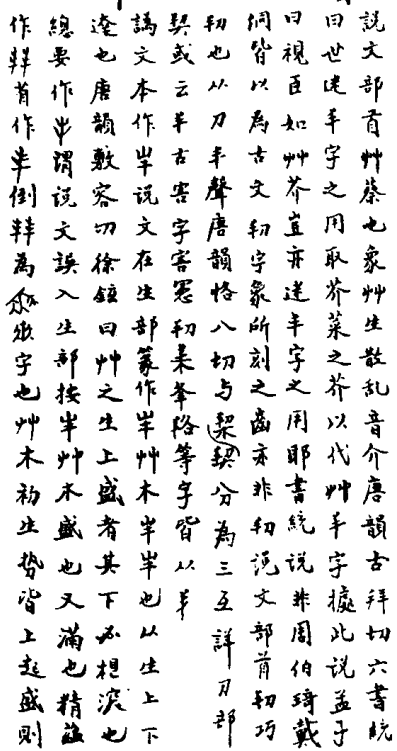 説文部首艸蔡也象艸生散乱音介唐韻古拜切六書統
曰世迷丯字之用取芥菜之芥以代艸丯字據此説孟子
曰視臣如艸芥豈亦迷丯字之用耶書統説非周伯琦戴
侗皆以為古文㓞字象所刻之齒亦非㓞説文部首㓞巧
㓞也从刀丯聲唐韻恪八切与栔契分為三互詳刀部
契或云丯古害字害憲㓞耒夆等字皆从丯
譌文本作丰説文在生部篆作丰艸木丰丰也从生上下
達也唐韻敷容切徐鍇曰艸之生上盛者其下必根深也
總要作謂説文誤入生部按丰艸木盛也又滿也精蘊
作首作倒為字也艸木初生勢皆上起盛則